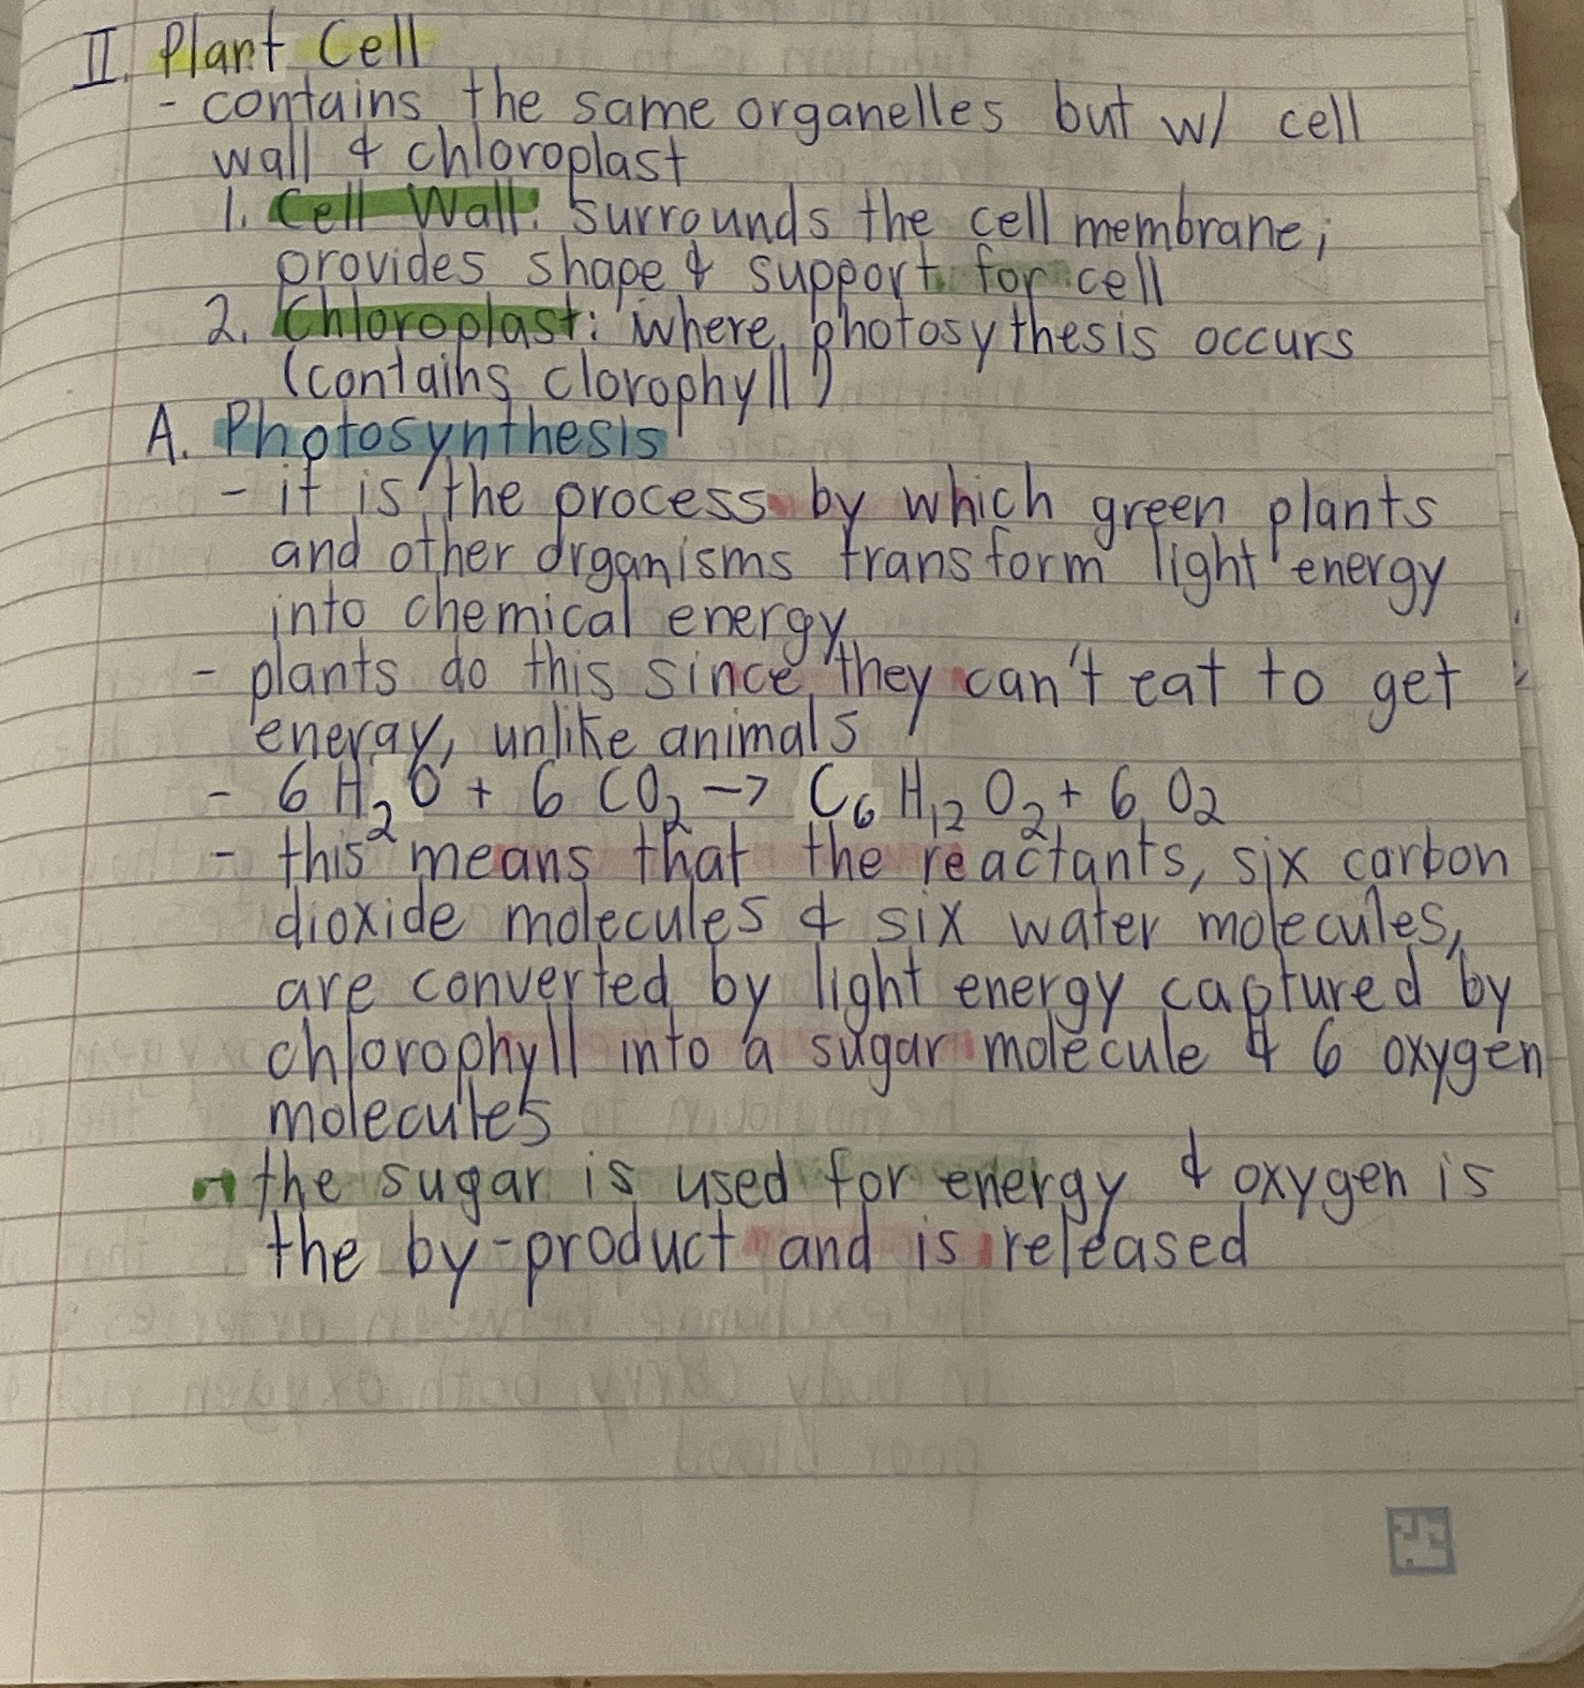 II. Plant Cell
- contains the same organelles but w/ cell
wall & chloroplast
1. Cell Wall: surrounds the cell membrane;
provides shape & support for cell
2. Chloroplast: where photosythesis occurs
(contains clorophyll)
A. Photosynthesis
- it is the process by which green plants
and other organisms transform light energy
into chemical energy
- plants do this since they can't eat to get
energy, unlike animals
- 6 H₂O + 6 CO₂ -> C₆ H₁₂ O₂ + 6 O₂
- this means that the reactants, six carbon
dioxide molecules & six water molecules,
are converted by light energy captured by
chlorophyll into a sugar molecule & 6 oxygen
molecules
- the sugar is used for energy & oxygen is
the by-product and is released